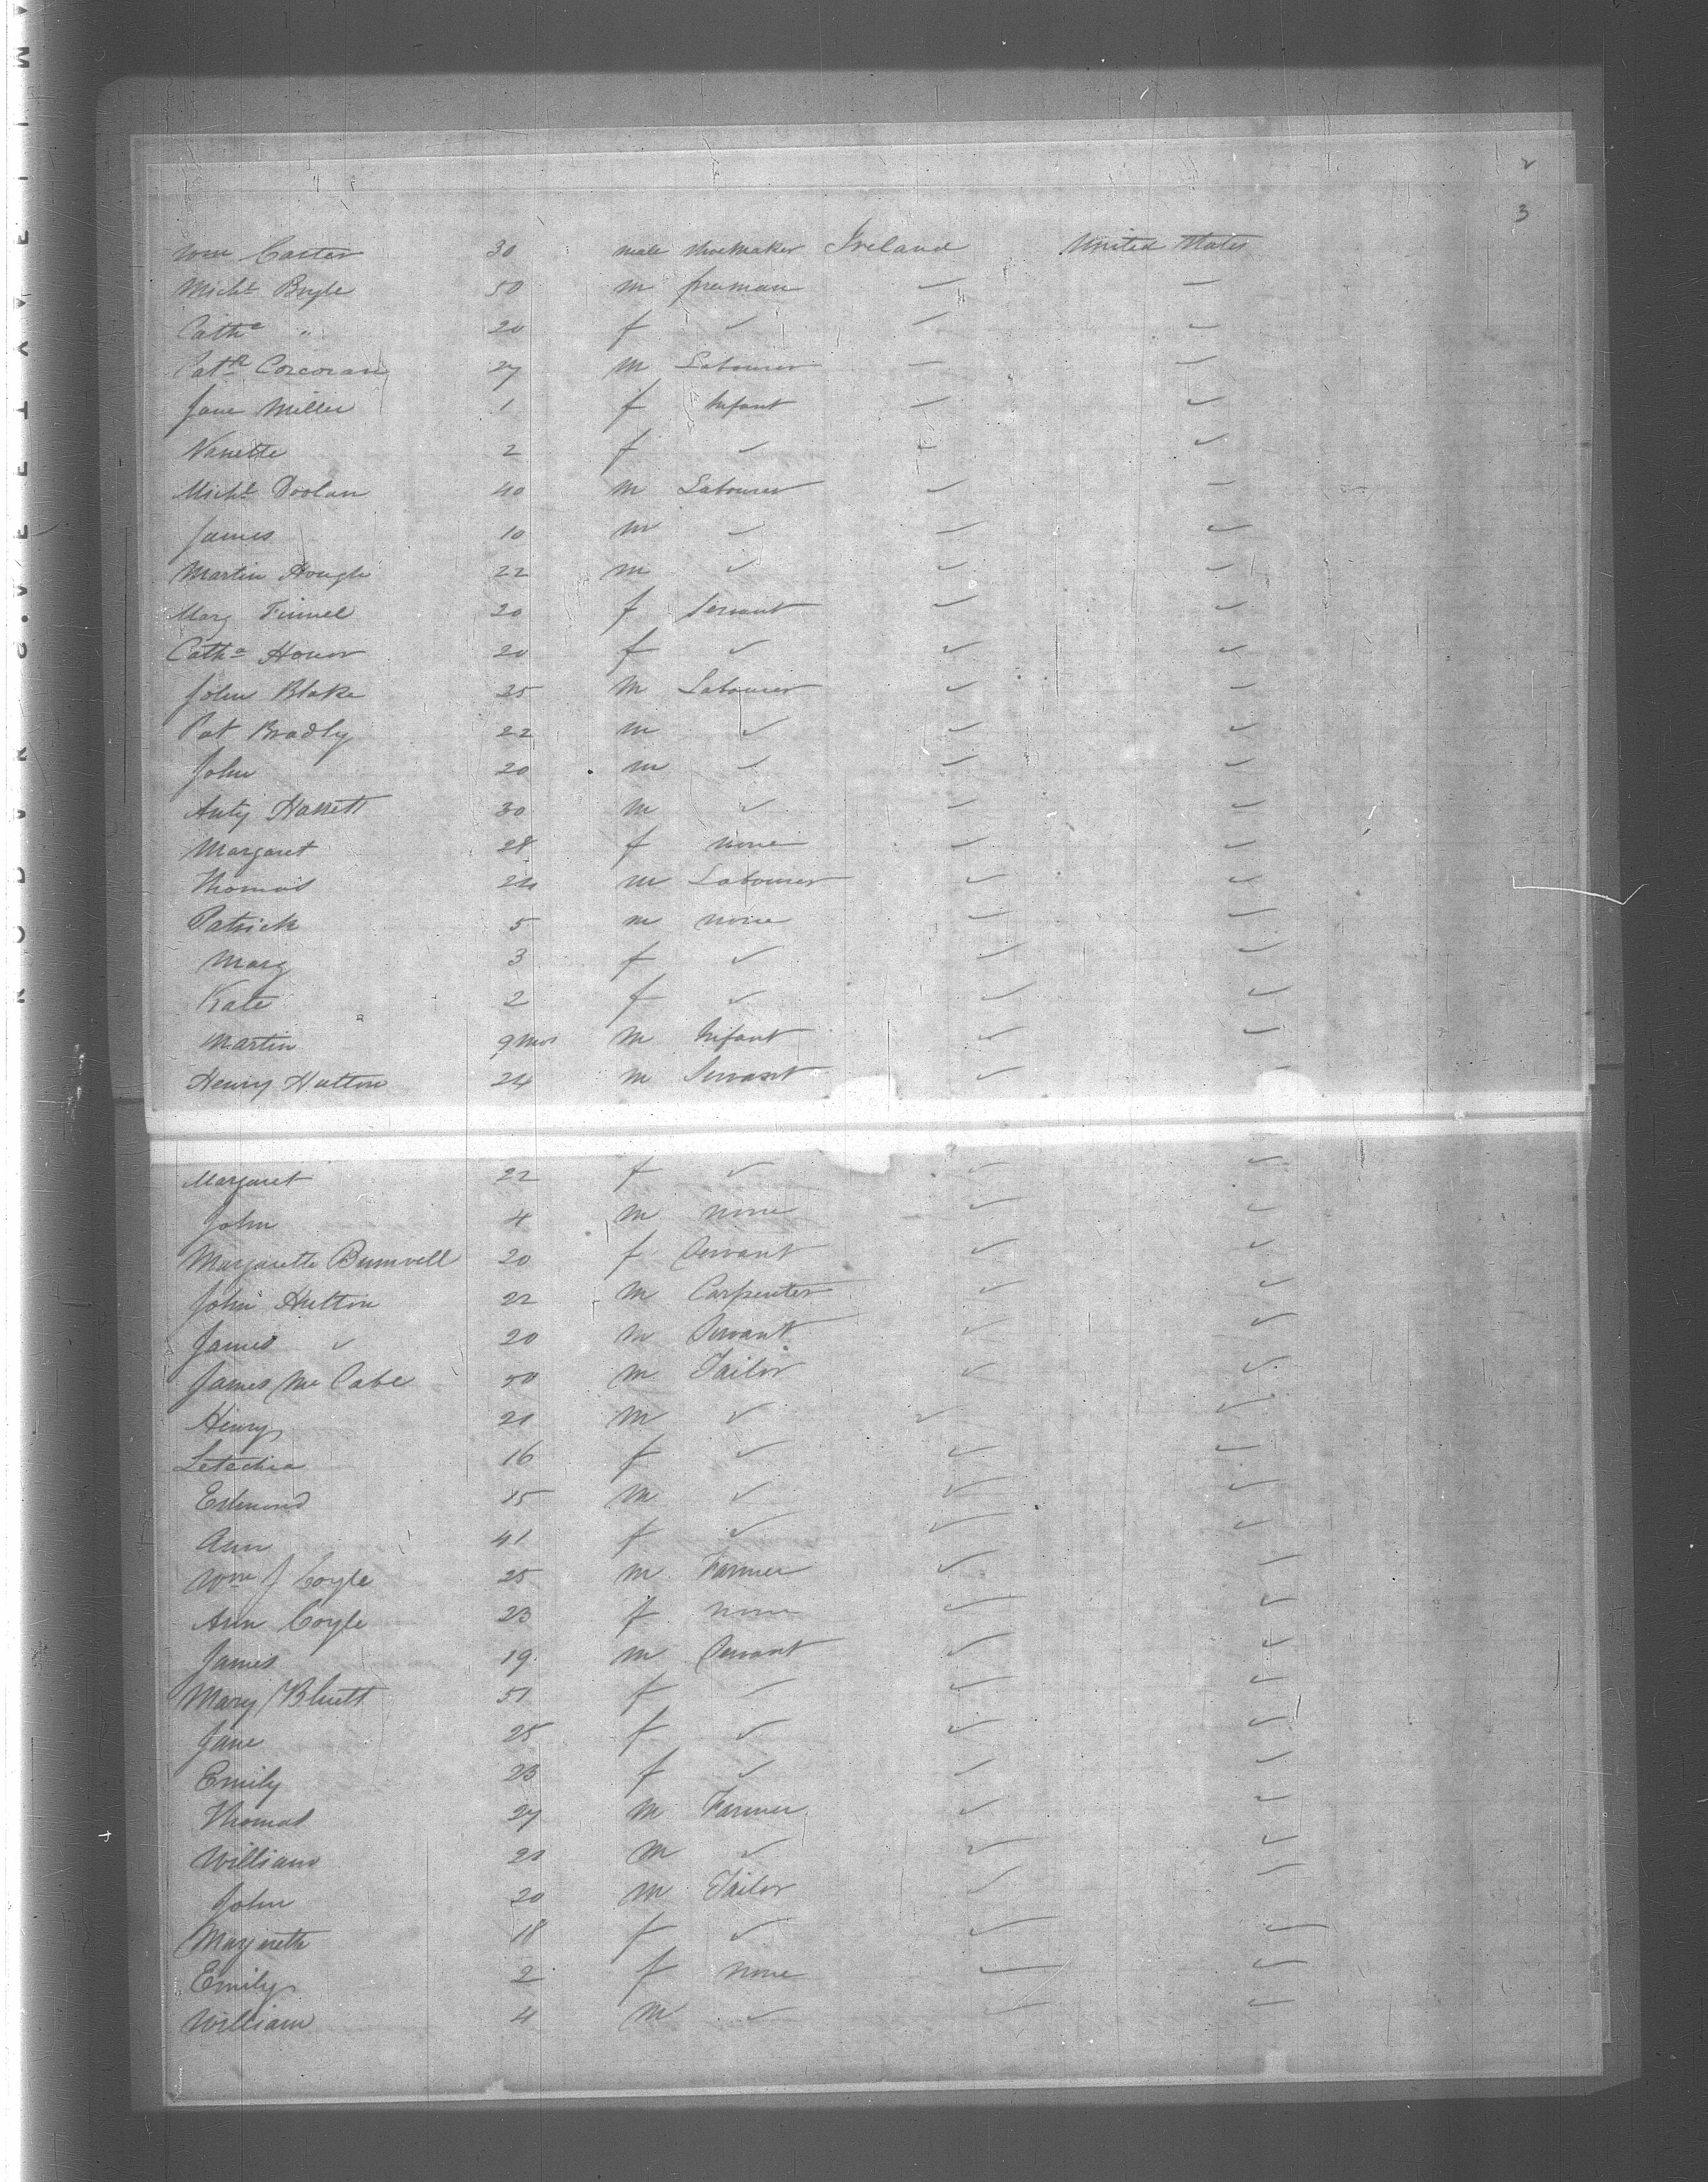 3
Wm Carter 30 male Shoemaker Ireland United States
Michl Boyle 50 m freeman — —
Catha " 20 f ✓ — —
Patk Corcoran 27 m Labourer — —
Jane Miller 1 f Infant — ✓
Nanette 2 f ✓ — ✓
Michl Doolan 40 m Labourer ✓ —
James 10 m ✓ ✓ ✓
Martin Hough 22 m ✓ ✓ ✓
Mary Finnel 20 f Servant ✓ ✓
Catha Honor 20 f ✓ ✓ ✓
John Blake 25 m Labourer ✓ ✓
Pat Bradly 22 m ✓ ✓ ✓
John 20 m ✓ ✓ ✓
Anty 30 m ✓ ✓ ✓
Margaret 28 f none ✓ ✓
Thomas 24 m Labourer ✓ ✓
Patrick 5 m none ✓ ✓
Mary 3 f ✓ ✓ ✓
Kate 2 f ✓ ✓ ✓
Martin 9 mos m Infant ✓ ✓
Henry Hutton 24 m Servant ✓ -
Margaret 22 f ✓ ✓ ✓
John 4 m none ✓ ✓
Margarette 20 f Servant ✓ ✓
John Hutton 22 m Carpenter ✓ ✓
James ✓ 20 m Servant ✓ ✓
James Mc Cabe 50 m Tailor ✓ ✓
Henry 21 m ✓ ✓ ✓
Letechia 16 f ✓ ✓ ✓
Edmond 15 m ✓ ✓ ✓
Ann 41 f ✓ ✓ ✓
Wm J Coyle 25 m Farmer ✓ ✓
Ann Coyle 23 f none ✓ ✓
James 19 m Servant ✓ ✓
Mary Bluett 51 f ✓ ✓ ✓
Jane 25 f ✓ ✓ ✓
Emily 23 f ✓ ✓ ✓
Thomas 27 m Farmer ✓ ✓
William 21 m ✓ ✓ ✓
John 20 m Tailor ✓ ✓
Margreth 18 f ✓ ✓ ✓
Emily 2 f none ✓ ✓
William 4 m ✓ ✓ ✓